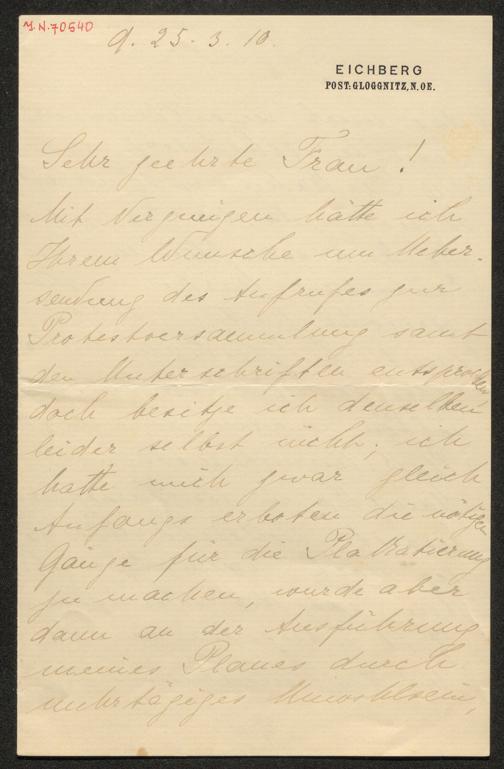 J.N. 70640
9. 25. 3. 10.
EICHBERG
POST: GLOGGNITZ, N. OE.
Sehr geehrte Frau!
Mit Vergnügen hätte ich
Ihrem Wunsche um Ueber-
sendung des Aufrufes zur
Protestversammlung samt
den Unterschriften entsprochen
doch besitze ich denselben
leider selbst nicht; ich
hatte mich zwar gleich
Anfangs erboten die nötigen
Gänge für die Plakatierung
zu machen, wurde aber
dann an der Ausführung
meines Planes durch
mehrtägiges Unwohlsein,